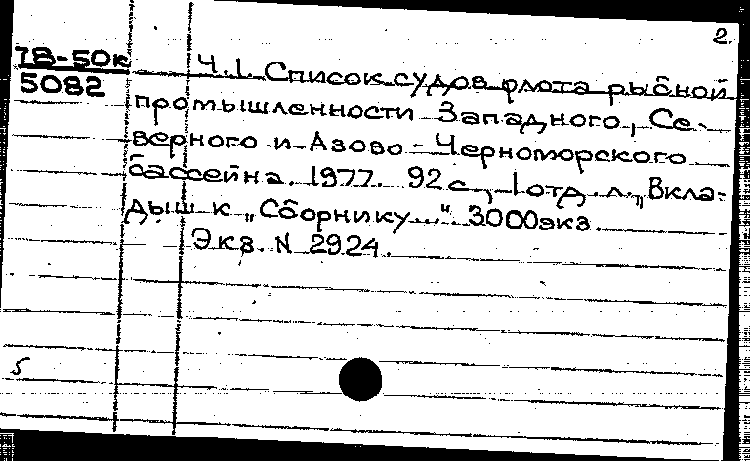 2.
78-50к
5082
Ч.1. Список судов флота рыбной
промышленности Западного, Се-
верного и Азово-Черноморского
бассейна. 1977. 92 с., 1 отд. л. „Вкла-
дыш к „Сборнику..." 3000экз.
Экз. N 2924.
5